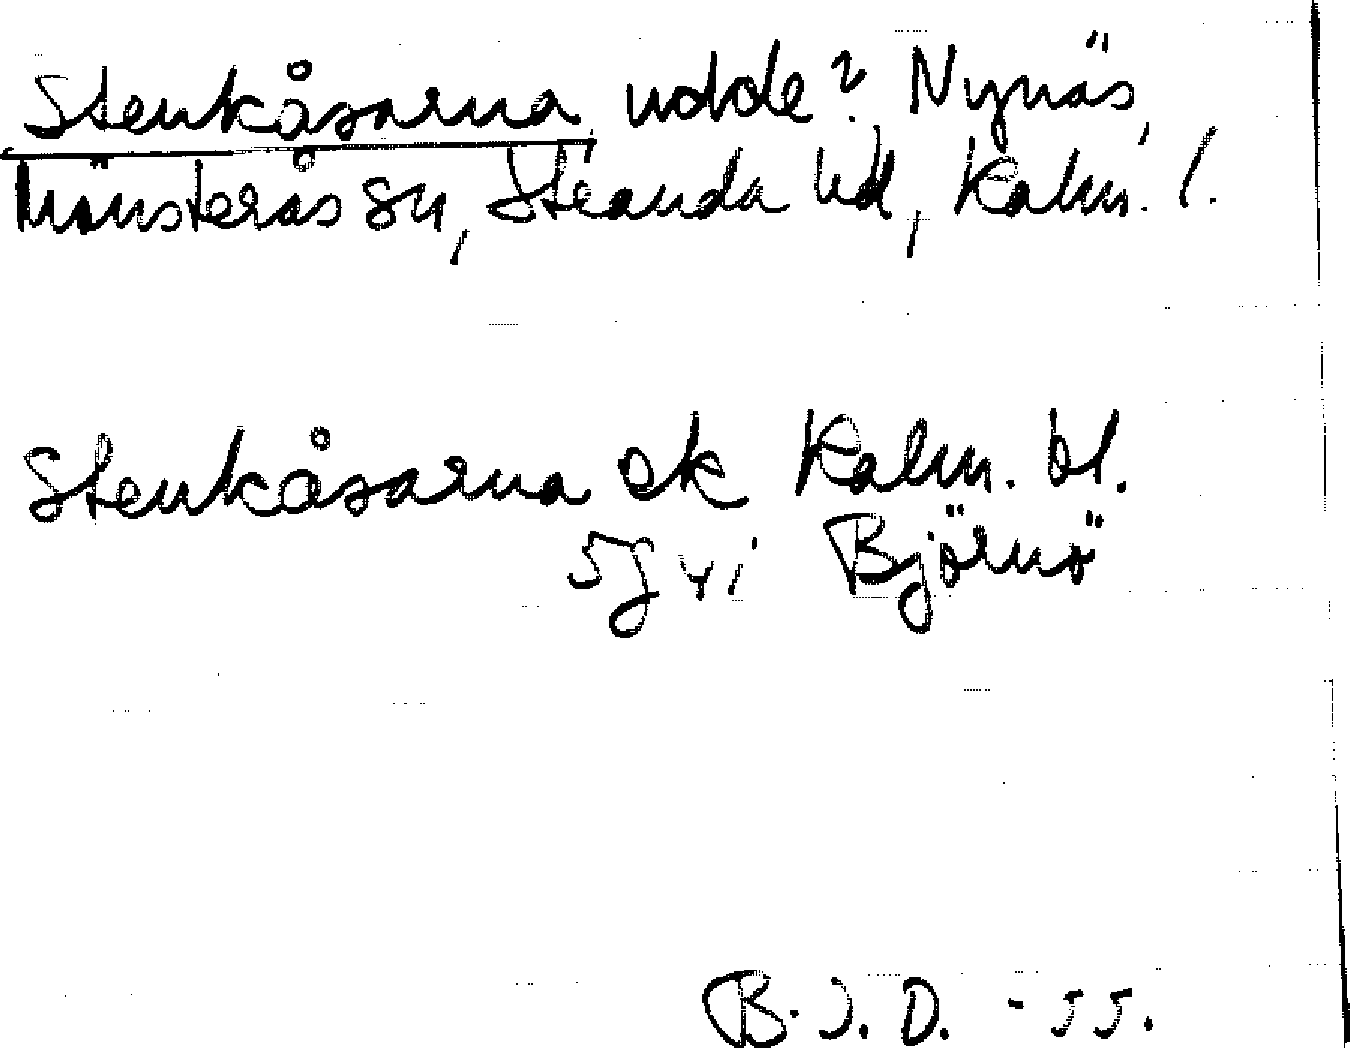 Stenkåsarna, udde? Nynäs,
Mönsterås sn, Stranda hd, Kalm. l.
Stenkåsarna ek Kalm. bl.
5g vi Björnö
B.J.D. -55.